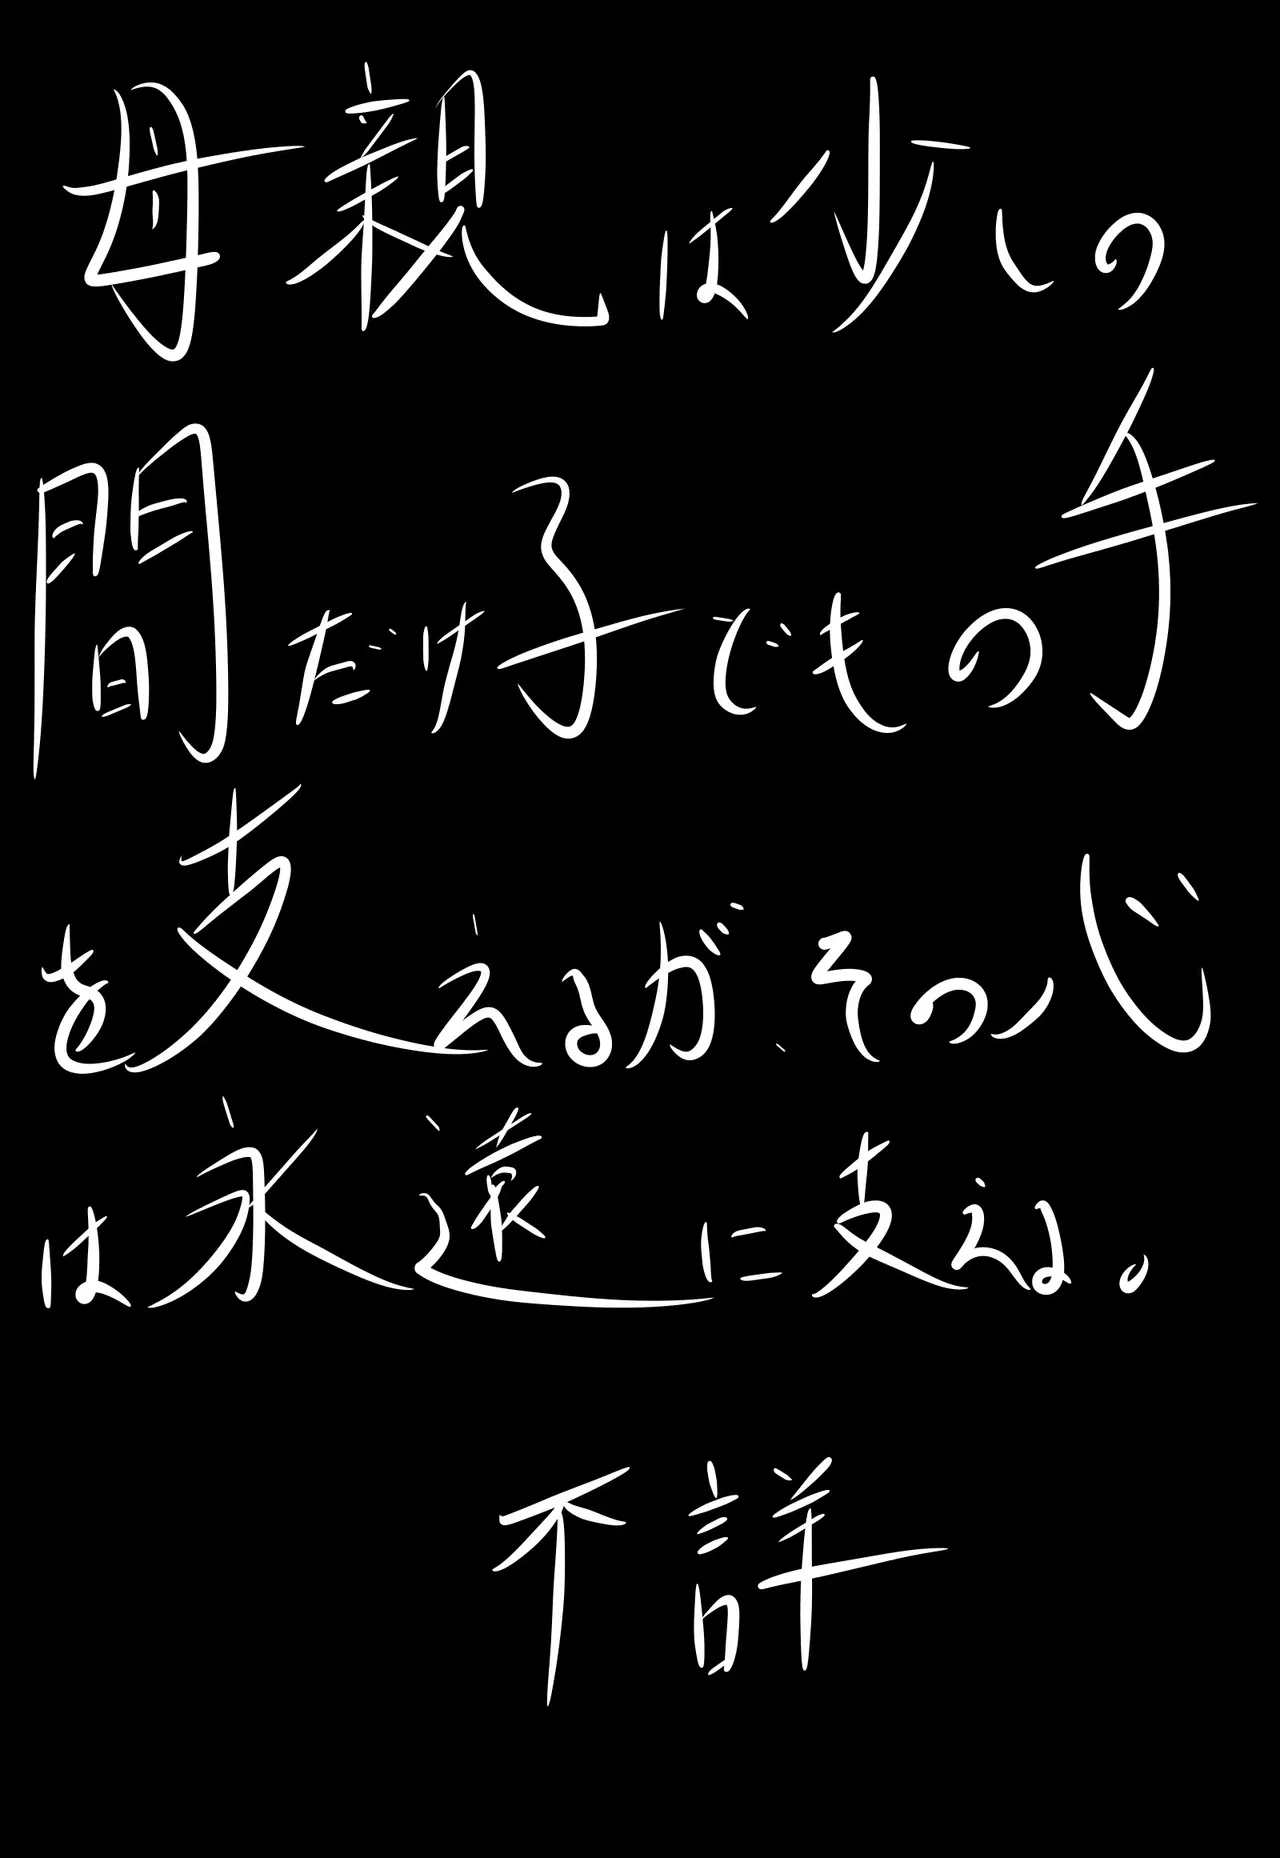 母親は少しの
間だけ子でもの手
を支えるが、その心
は永遠に支える。
不詳